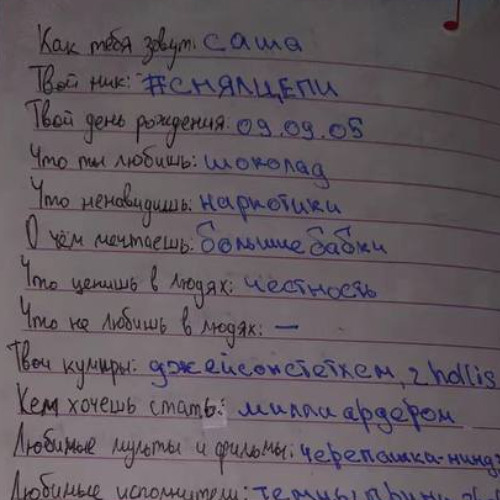 Как тебя зовут: саша
Твой ник: #СНЯЛЦЕПИ
Твой день рождения: 09.09.05
Что ты любишь: шоколад
Что ненавидишь: наркотики
О чём мечтаешь: большие бабки
Что ценишь в людях: честность
Что не любишь в людях: —
Твои кумиры: джейсонстетхем, 2hollis
Кем хочешь стать: миллиардером
Любимые мульты и фильмы: черепашка-нинд
Любимые исполнители: